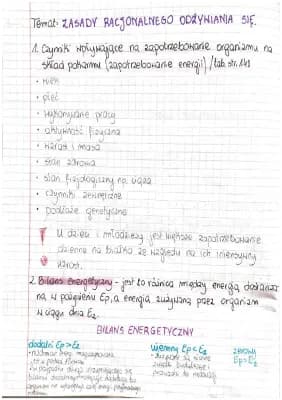 Temat: ZASADY RACJONALNEGO ODŻYWIANIA SIĘ.
1. Czynniki wpływające na zapotrzebowanie organizmu na
skład pokarmu (zapotrzebowanie energii) / tab str. 141
• wiek
• płeć
• wykonywanie pracy
• aktywność fizyczna
• wzrost i masa
• stan zdrowia
• stan fizjologiczny np. ciąża
• czynniki zewnętrzne
• podłoże genetyczne
U dzieci i młodzieży jest większe zapotrzebowanie
dzienne na białko ze względu na ich intensywny
wzrost.
2. Bilans energetyczny - jest to różnica między energią dostarczaną
w pożywieniu Ep, a energią zużywaną przez organizm
w ciągu dnia Ez.
BILANS ENERGETYCZNY
dodatni Ep>Ez
ujemny Ep<Ez